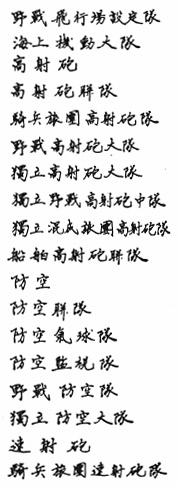 野戰飛行場設定隊
海上機動大隊
高射砲
高射砲聯隊
騎兵旅團高射砲隊
野戰高射砲大隊
獨立高射砲大隊
獨立野戰高射砲中隊
獨立混成旅團高射砲隊
船舶高射砲聯隊
防空
防空聯隊
防空氣球隊
防空監視隊
野戰防空隊
獨立防空大隊
速射砲
騎兵旅團速射砲隊